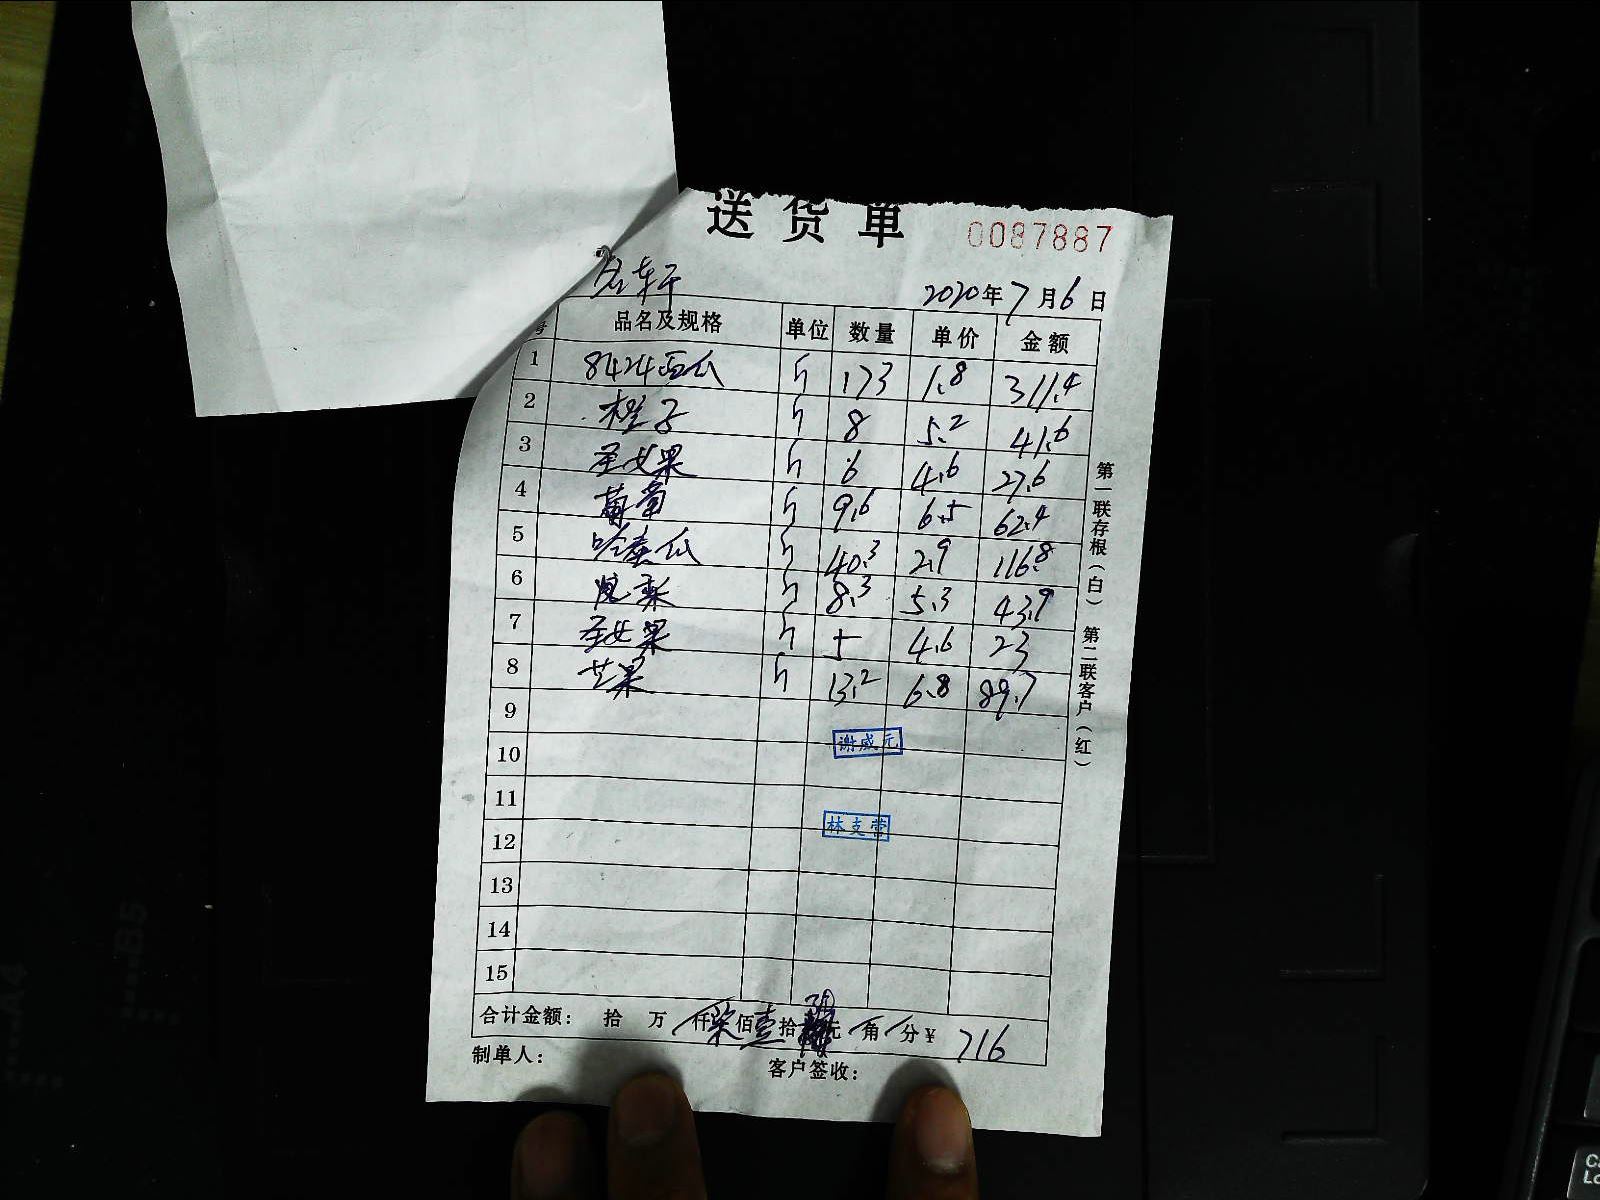 送货单 0087887
名轩 2020年7月6日
号 品名及规格 单位 数量 单价 金额
1 8424西瓜 斤 173 1.8 311.4
2 橙子 斤 8 5.2 41.6
3 圣女果 斤 6 4.6 27.6
4 葡萄 斤 9.6 6.5 62.4
5 哈蜜瓜 斤 40.3 2.9 116.8
6 凤梨 斤 8.3 5.3 43.9
7 圣女果 斤 5 4.6 23
8 芒果 斤 13.2 6.8 89.7
9
10 谢咸元
11
12 林支营
13
14
15
合计金额: 拾 万 仟柒佰壹拾 元 角 分¥ 716
制单人: 客户签收:
第一联存根(白) 第二联客户(红)
A4
B5